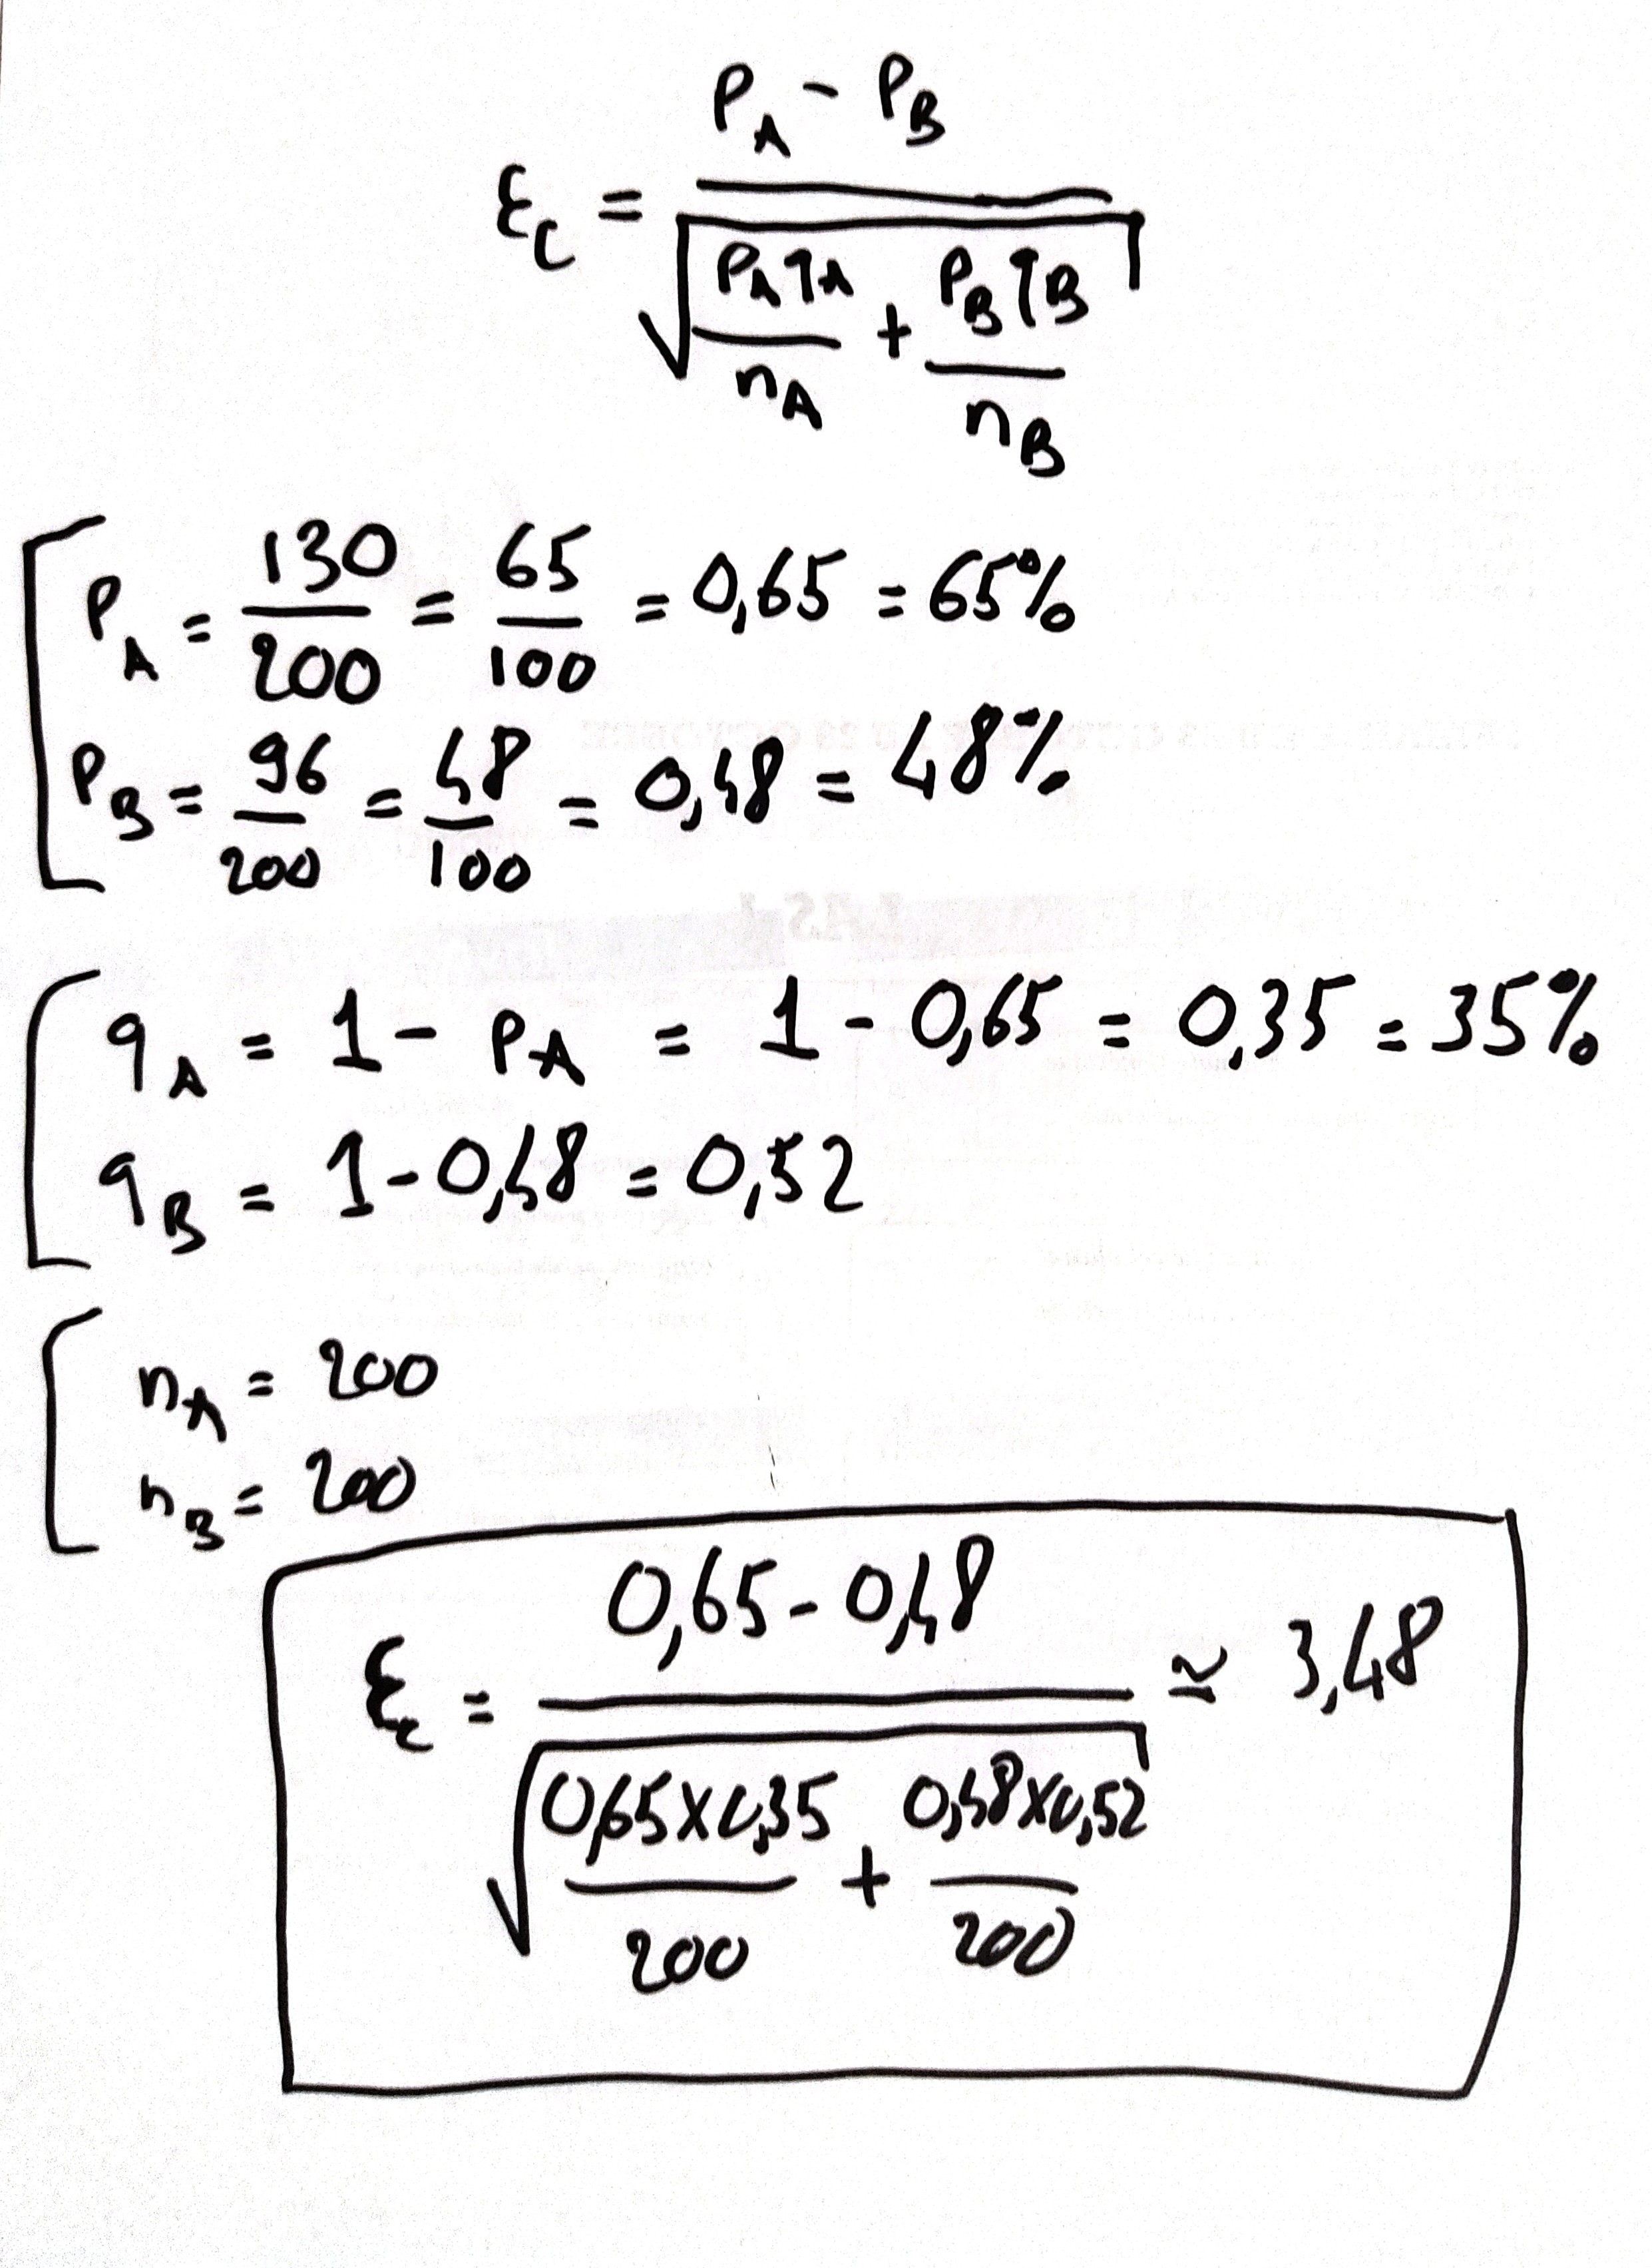 εc = (PA - PB) / √(PA qA / nA + PB qB / nB)
PA = 130/200 = 65/100 = 0,65 = 65%
PB = 96/200 = 48/100 = 0,48 = 48%
qA = 1 - PA = 1 - 0,65 = 0,35 = 35%
qB = 1 - 0,48 = 0,52
nA = 200
nB = 200
εc = (0,65 - 0,48) / √(0,65 x 0,35 / 200 + 0,48 x 0,52 / 200) ≃ 3,48